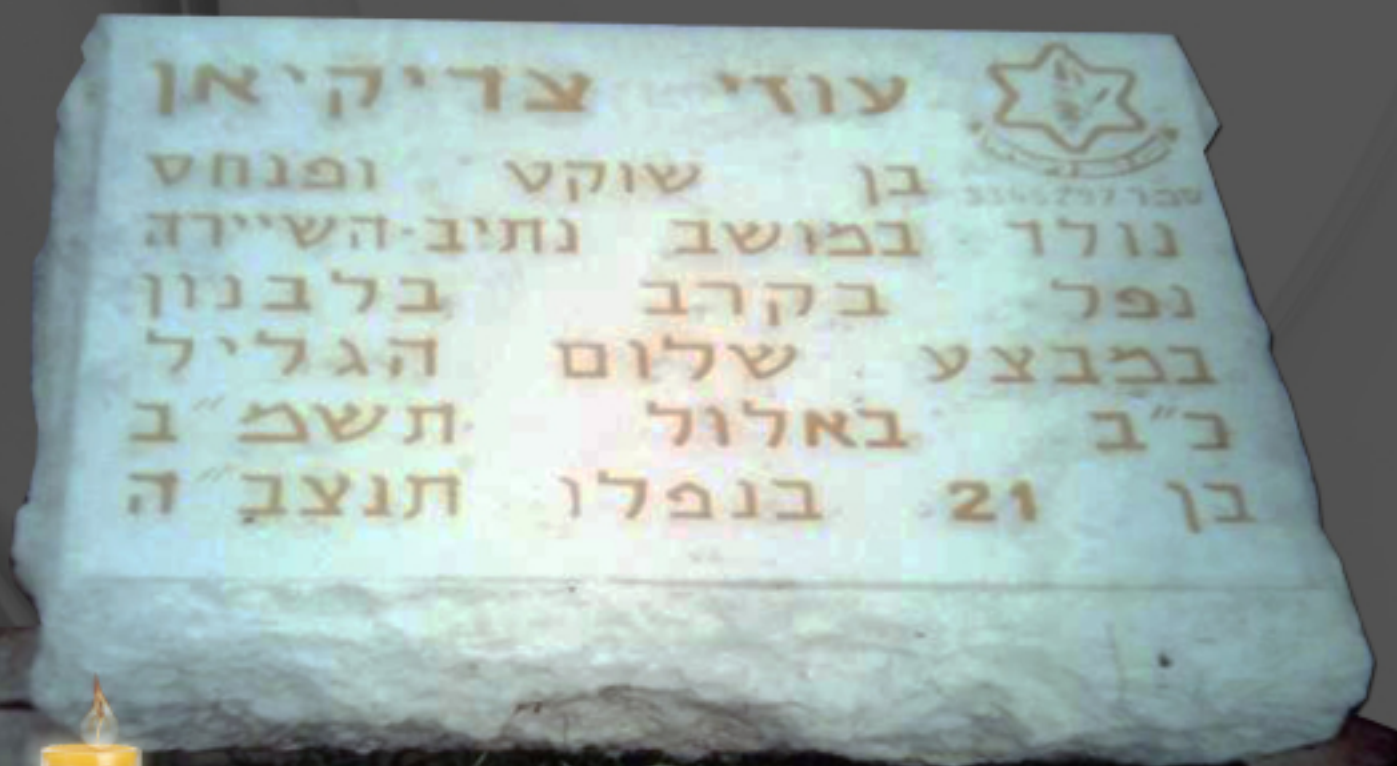 עוזי צדיקיאן
בן שוקט ופנחס
נולד במושב נתיב-השיירה
נפל בקרב בלבנון
במבצע שלום הגליל
כ״ב באלול תשמ״ב
בן 21 בנפלו תנצב״ה